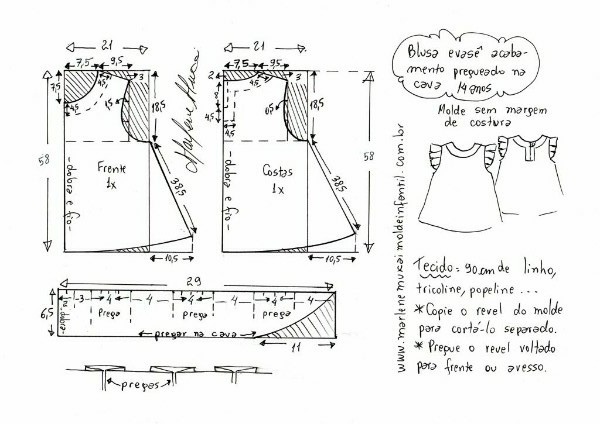 21
7,5
9,5
3
4,5
7,5
4,5
0,5
18,5
58
Frente
1x
-dobra e fio-
38,5
10,5
Marlene Mukai
21
7,5
9,5
2
3
4,5
8
4,5
4,5
0,5
18,5
58
Costas
1x
-dobra e fio-
38,5
10,5
29
6,5
-dobra-
3
4
4
4
4
4
4
Prega
Prega
prega
pregar na cava
11
pregas
Blusa evasê acaba-
mento pregueado na
cava 14 anos
Molde sem margem
de costura
www.marlenemukaimoldeinfantil.com.br
Tecido = 90cm de linho,
tricoline, popeline ...
* Copie o revel do molde
para cortá-lo separado.
* Pregue o revel voltado
para frente ou avesso.